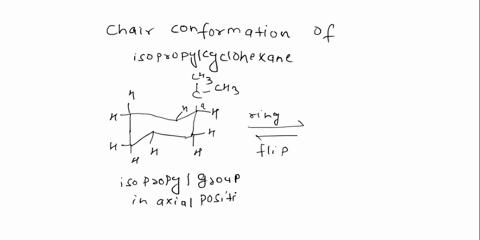 Chair conformation of
isopropylcyclohexane
CH3
C-CH3
H
H H a
H H
H H
H H
ring
flip
isopropyl group
in axial positi